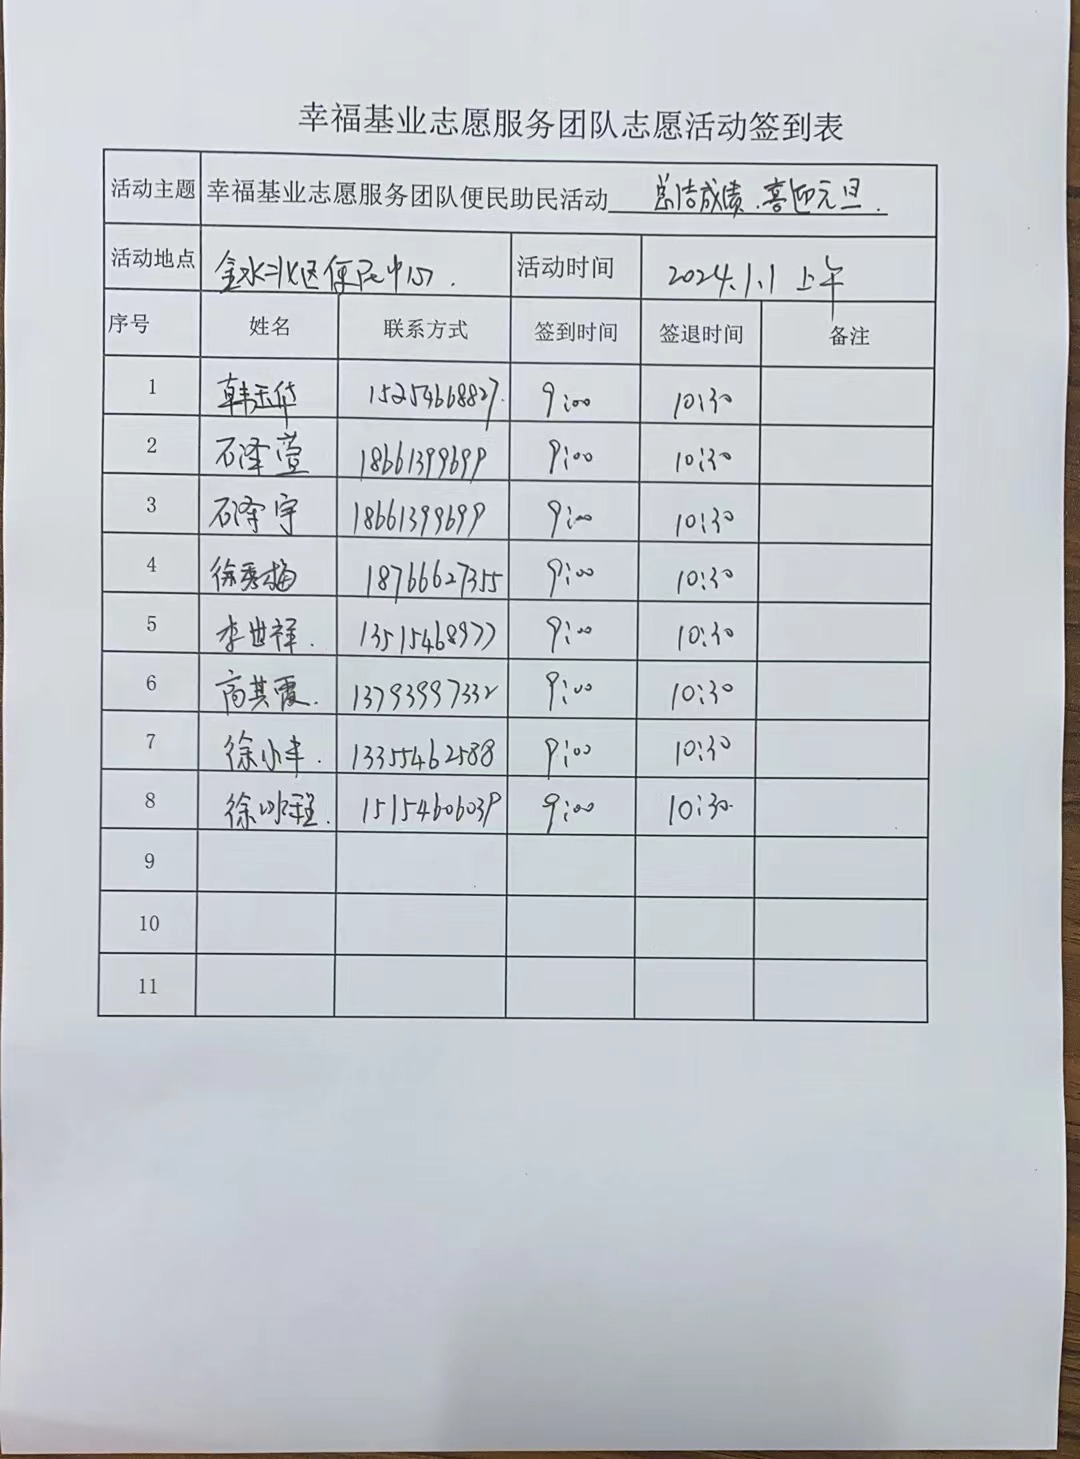 幸福基业志愿服务团队志愿活动签到表
活动主题 幸福基业志愿服务团队便民助民活动 总结成绩.喜迎元旦.
活动地点 金水北区便民中心. 活动时间 2024.1.1 上午
序号 姓名 联系方式 签到时间 签退时间 备注
1 韩玉华 15254668827. 9:00 10:30
2 石泽萱 18661399699 9:00 10:30
3 石泽宇 18661399699 9:00 10:30
4 徐秀梅 18766627355 9:00 10:30
5 李世祥. 13515468977 9:00 10:30
6 高其霞. 13793997332 9:00 10:30
7 徐小丰. 13355462588 9:00 10:30
8 徐 程. 15154606039 9:00 10:30.
9
10
11